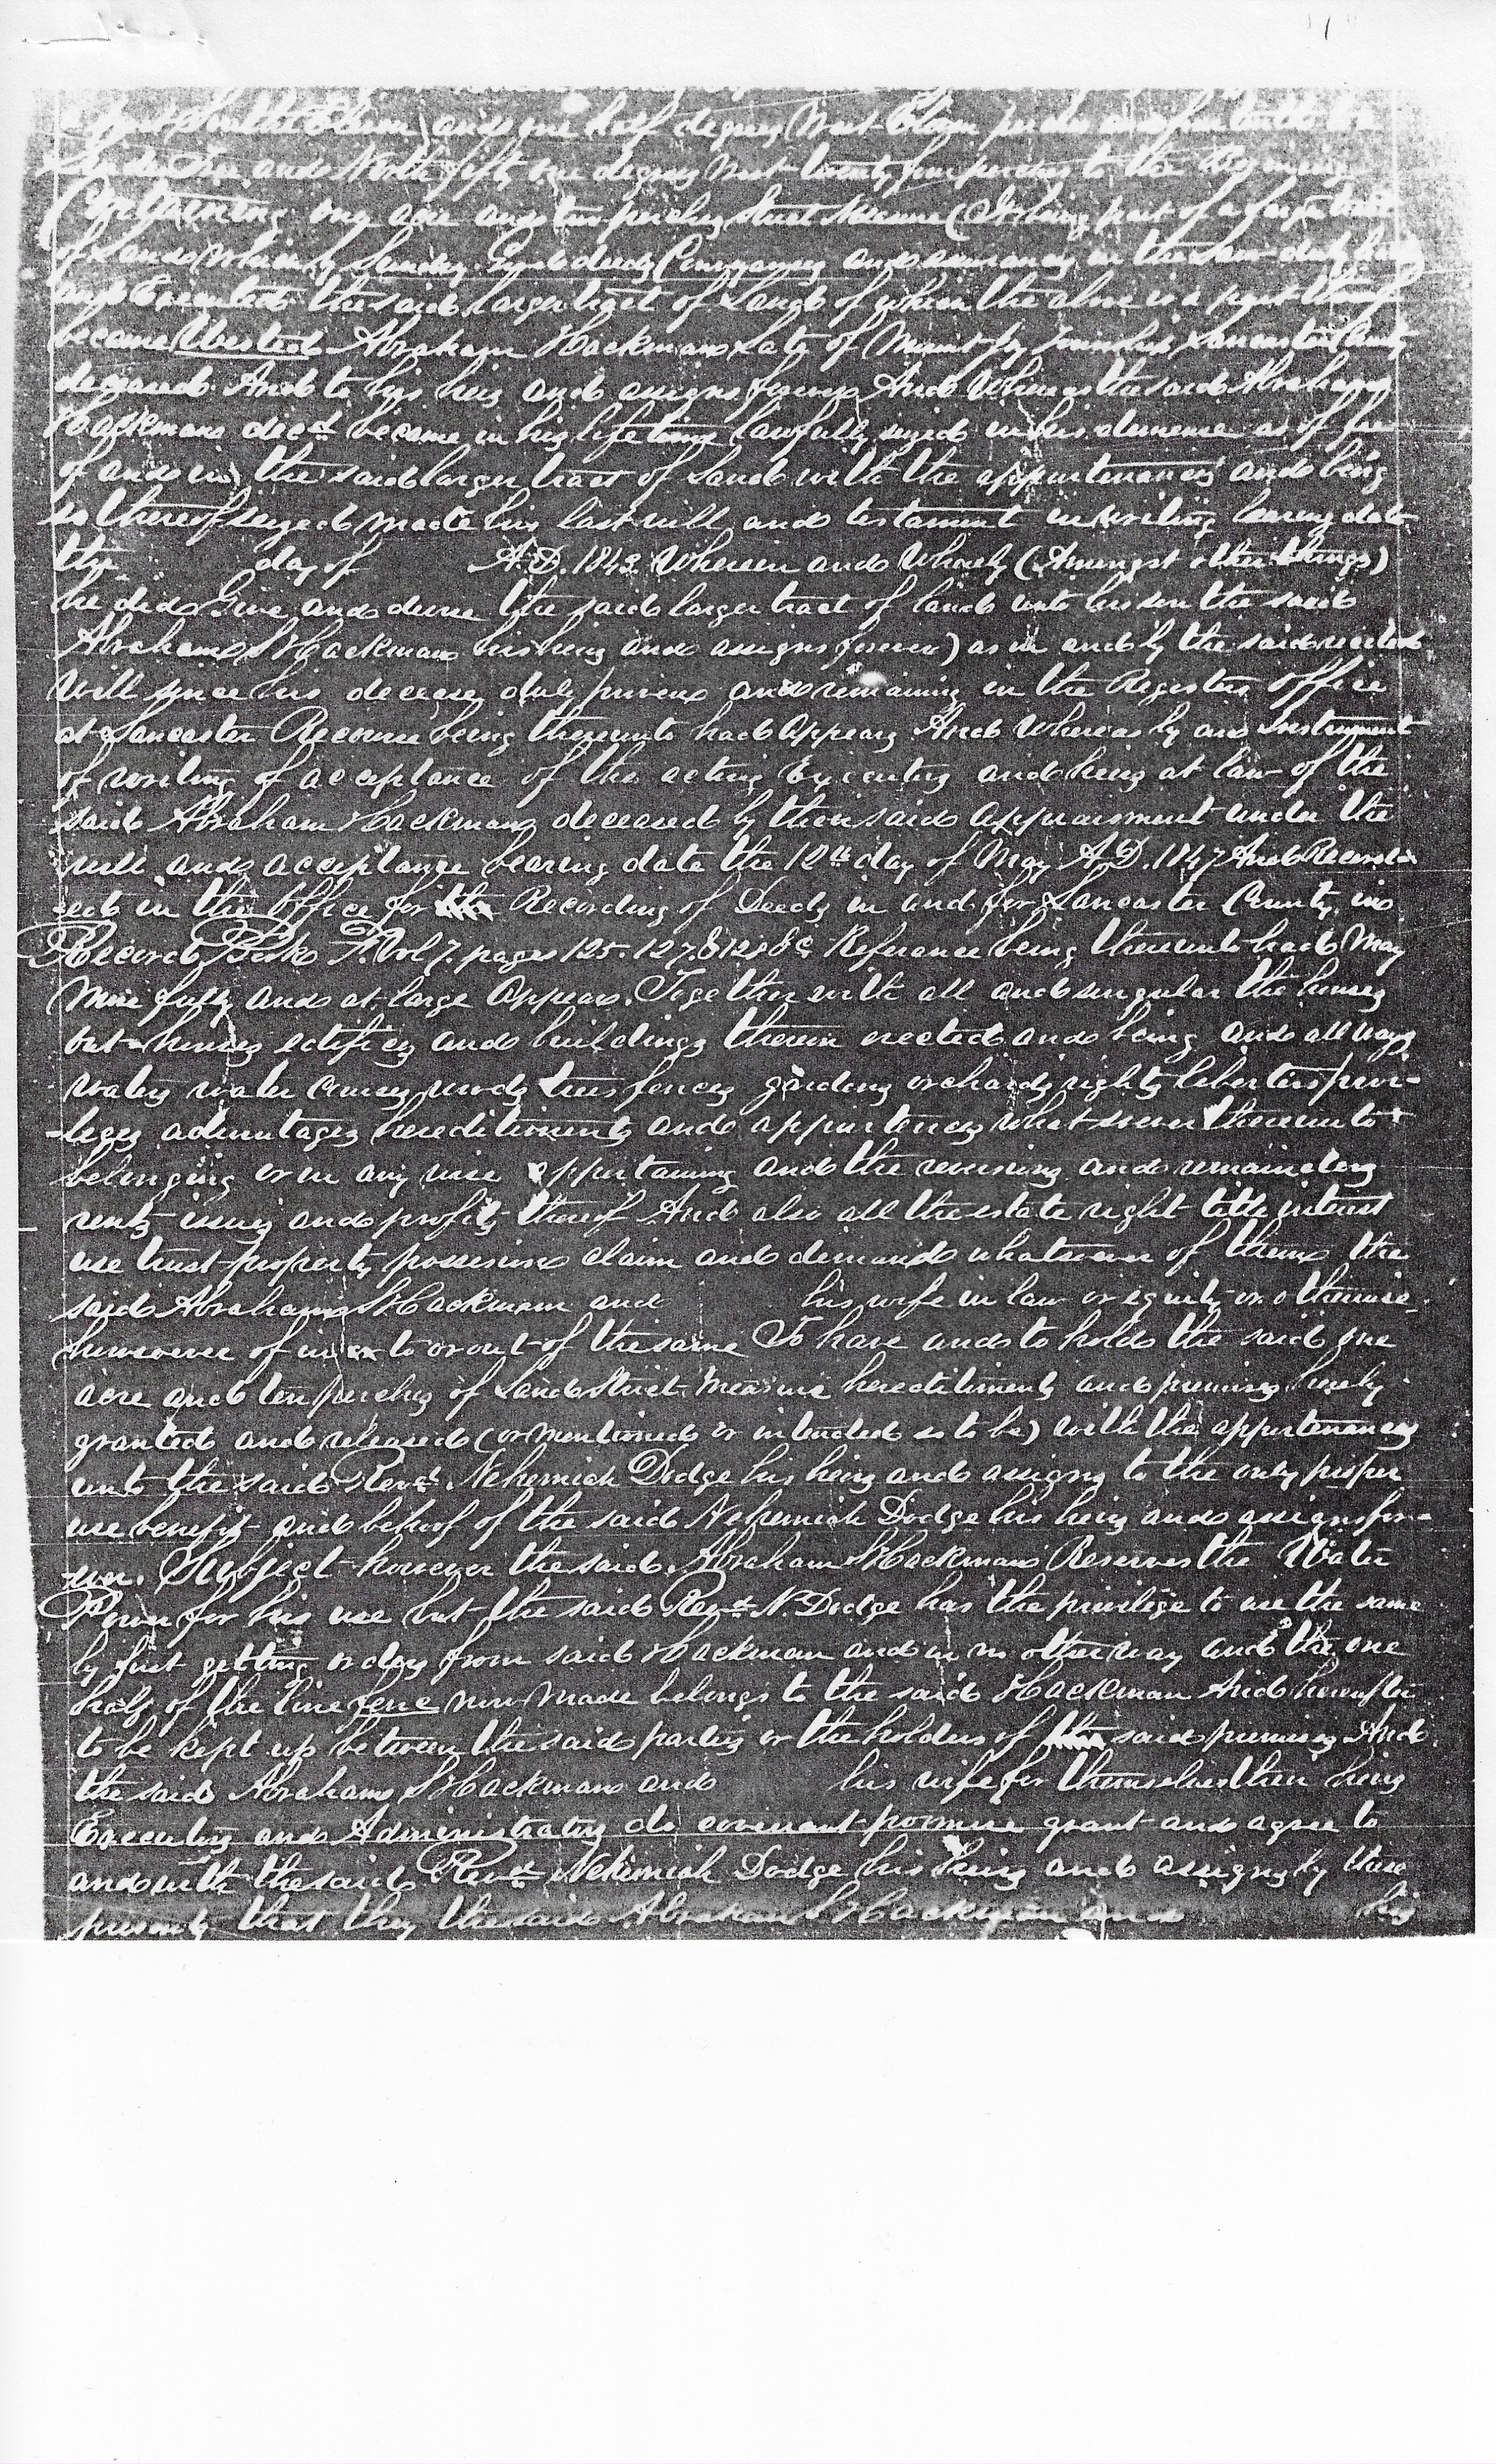 and one half degrees West Eleven perches and
and North fifty one degrees West twenty four perches to the Beginning
Containing one acre and ten perches Strict Measure (It being part of a larger tract
of Land which by Sundry Good deeds Conveyances and assurances in the Law duly had
and Executed the said larger tract of Land of which the above is a part thereof
became Vested Abraham Hackman Late of Mount Joy Township Lancaster County
deceased And to his heirs and assigns forever And Whereas the said Abraham
Hackman decd. became in his life time lawfully seized in his demesne as of fee
of and in the said larger tract of Land with the appurtenances and being
so thereof seized made his last will and testament in writing bearing date
the day of A.D. 1843 Wherein and Whereby (Amongst other things)
he did Give and devise the said larger tract of land unto his son the said
Abraham S Hackman his heirs and assigns forever) as in and by the said recited
Will since his decease duly proven and remaining in the Registers office
at Lancaster Recourse being thereunto had Appears And Whereas by an Instrument
of writing of acceptance of the acting Executors and heirs at law of the
said Abraham Hackman deceased by then said appraisment under the
will and acceptance bearing date the 12th day of May A.D. 1847 And Record-
ed in the Office for Recording of Deeds in and for Lancaster County in
Record Book F. Vol 7. pages 125. 127. & 128 &c Reference being thereunto had May
More fully and at large Appear. Together with all and singular the houses
out-houses edifices and buildings therein erected and being and all ways
waters water courses woods trees fences gardens orchards rights liberties privi-
leges advantages hereditiments and appurtences what soever thereunto
belonging or in any wise appertaining and the reversions and remainders
rents issues and profits thereof And also all the estate right title interest
use trust property possession claim and demand whatsoever of them the
said Abraham S Hackman and his wife in law or equity or otherwise
howsoever of in to or out of the same To have and to hold the said one
acre and ten perches of Land Strict Measure hereditiments and premises hereby
granted and released (or mentioned or intended so to be) with the appurtenances
unto the said Revd. Nehemiah Dodge his heirs and assigns to the only proper
use benefit and behoof of the said Nehemiah Dodge his heirs and assigns for-
ever. Subject however the said Abraham S Hackman Reserves the Water
Power for his use but the said Revd. N. Dodge has the privilege to use the same
by first getting orders from said Hackman and in no other way and the one
half of the line fence now made belongs to the said Hackman And hereafter
to be kept up between the said parties or the holders of said premises And
the said Abraham S Hackman and his wife for themselves their heirs
Executors and Administrators do covenant promise grant and agree to
and with the said Revd. Nehemiah Dodge his heirs and assigns by these
presents that they the said Abraham S Hackman and his